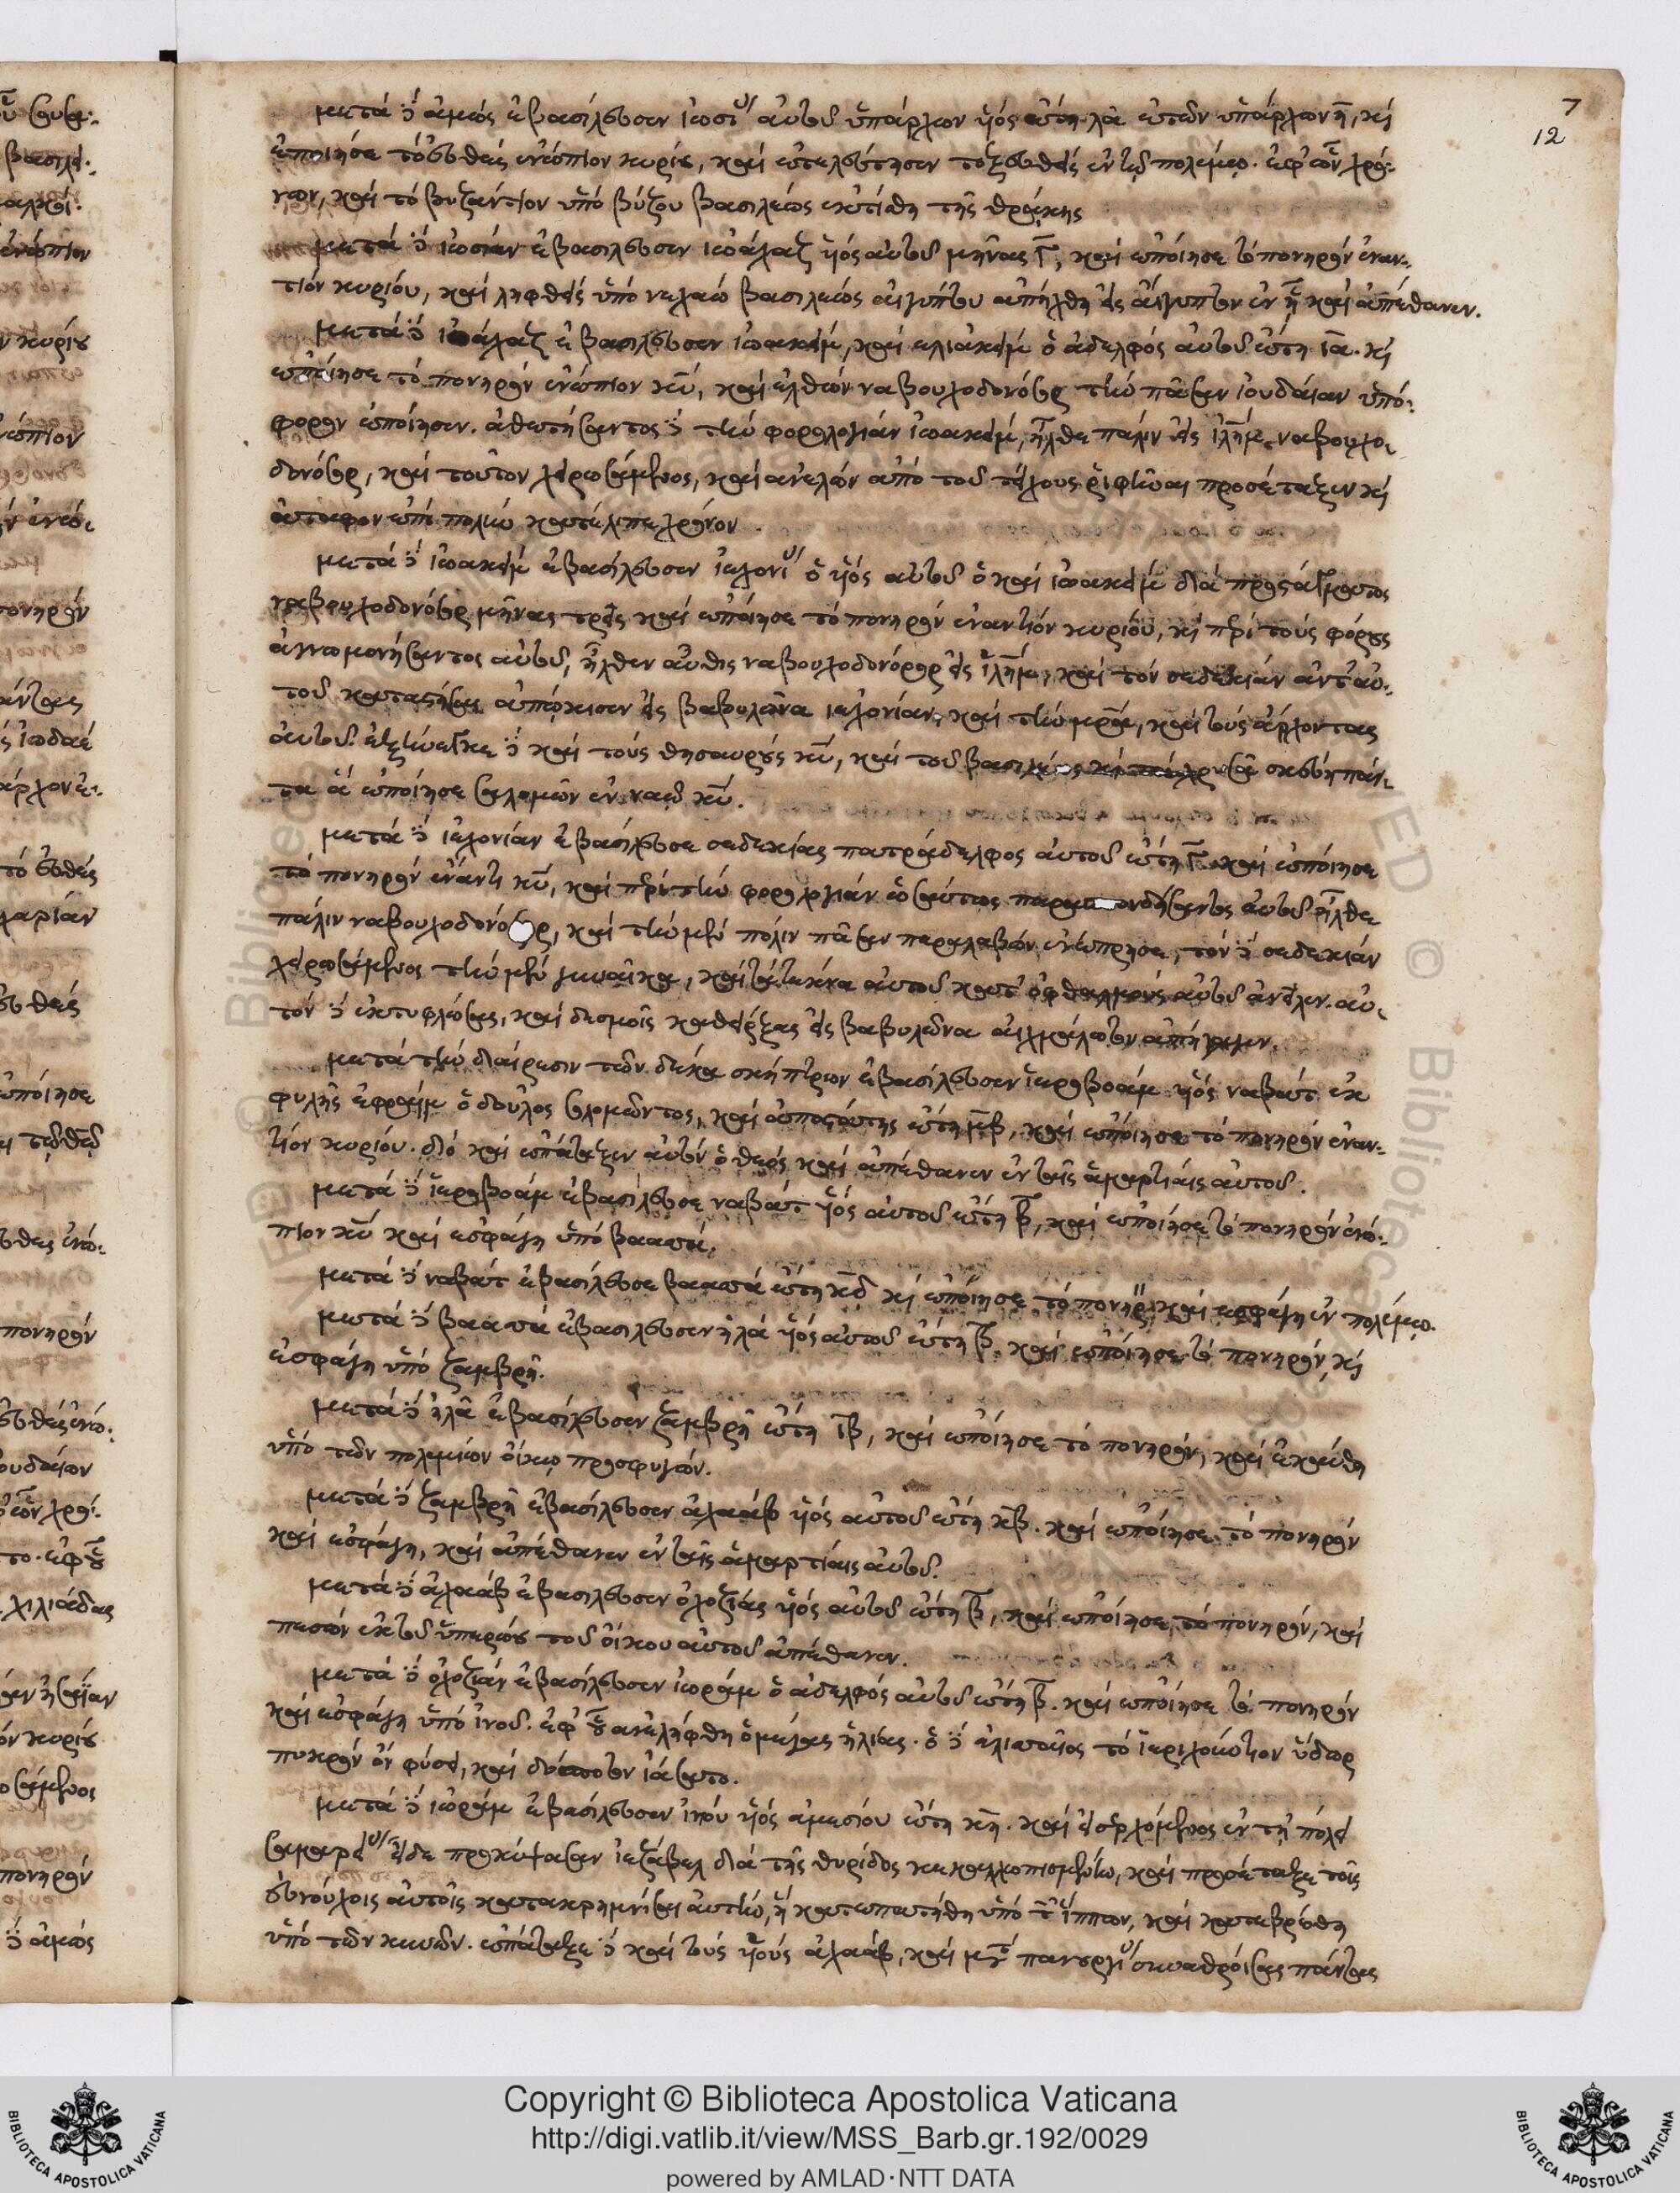 7
12
μετὰ δὲ ἀμὼς ἐβασίλευσεν ἰωσί αὐτοῦ ὑπάρχων υἱὸς ἔτη λα ἐτῶν ὑπάρχων η, κ
ἐποίησε τὸ εὐθὲς ἐνώπιον κυρίου, καὶ ἐτελεύτησεν τοξευθεὶς ἐν τῷ πολέμῳ. ἐφ' ὧν χρό
νων, καὶ τὸ βυζάντιον ὑπὸ βύζου βασιλέως ἐκτίσθη τῆς θράκης
μετὰ δὲ ἰωσίαν ἐβασίλευσεν ἰωάχαζ υἱὸς αὐτοῦ μῆνας γ, καὶ ἐποίησε τὸ πονηρὸν ἐναν
τίον κυρίου, καὶ ληφθεὶς ὑπὸ νεχαὼ βασιλέως αἰγύπτου ἀπήχθη εἰς αἴγυπτον ἐν ᾗ καὶ ἀπέθανεν.
μετὰ δὲ ἰωάχαζ ἐβασίλευσεν ἰωακεὶμ, καὶ ἐλιακεὶμ ὁ ἀδελφὸς αὐτοῦ ἔτη ια. κ
ἐποίησε τὸ πονηρὸν ἐνώπιον κυ, καὶ ἐλθὼν ναβουχοδονόσορ τὴν πᾶσαν ἰουδαίαν ὑπό
φορον ἐποίησεν. ἀθετήσαντος δὲ τὴν φορολογίαν ἰωακεὶμ, ἦλθε πάλιν εἰς ιλημ ναβουχο
δονόσορ, καὶ τοῦτον χειρωσάμενος, καὶ ἀνελὼν ἀπὸ τοῦ τείχους ῥιφῆναι προσέταξεν κ
ἄταφον ἐπὶ πολὺν κατέλιπε χρόνον
μετὰ δὲ ἰωακεὶμ ἐβασίλευσεν ἰεχονί ὁ υἱὸς αὐτοῦ ὁ καὶ ἰωακεὶμ διὰ προστάγματος
ναβουχοδονόσορ μῆνας τρεῖς καὶ ἐποίησε τὸ πονηρὸν ἐναντίον κυρίου, κ περὶ τοὺς φόρους
ἀγνωμονήσαντος αὐτοῦ, ἦλθεν αὖθις ναβουχοδονόσορ εἰς ιλημ, καὶ τὸν σεδεκίαν ἀντ' αὐ
τοῦ καταστήσας ἀπῴκισεν εἰς βαβυλῶνα ἰεχονίαν, καὶ τὴν μρα, καὶ τοὺς ἄρχοντας
αὐτοῦ. ἐξήνεγκε δὲ καὶ τοὺς θησαυροὺς κυ, καὶ τοῦ βασιλέως σκεύη πάν
τα ἃ ἐποίησε σαλομῶν ἐν ναῷ κυ.
μετὰ δὲ ἰεχονίαν ἐβασίλευσε σεδεκίας πατράδελφος αὐτοῦ ἔτη καὶ ἐποίησε
τὸ πονηρὸν ἔναντι κυ, καὶ περὶ τὴν φορολογίαν ὡσαύτως αὐτοῦ ἦλθε
πάλιν ναβουχοδονόσορ, καὶ τὴν μὲν πόλιν πᾶσαν παραλαβὼν ἐνέπρησε, τὸν δὲ σεδεκίαν
χειρωσάμενος τὴν μὲν γυναῖκα, καὶ τὰ τέκνα αὐτοῦ κατ' ὀφθαλμοὺς αὐτοῦ ἀνεῖλεν. αὐ
τὸν δὲ ἐκτυφλώσας, καὶ δεσμοῖς καθείρξας εἰς βαβυλῶνα αἰχμάλωτον ἀπήγαγεν.
μετὰ τὴν διαίρεσιν τῶν δέκα σκήπτρων ἐβασίλευσεν ἱεροβοὰμ υἱὸς ναβὰτ ἐκ
φυλῆς ἐφραὶμ ὁ δοῦλος σολομῶντος, καὶ ἀποστάτης ἔτη, καὶ ἐποίησε τὸ πονηρὸν ἐναν
τίον κυρίου. διὸ καὶ ἐπάταξεν αὐτὸν ὁ θεὸς καὶ ἀπέθανεν ἐν ταῖς ἁμαρτίαις αὐτοῦ.
μετὰ δὲ ἱεροβοὰμ ἐβασίλευσε ναβὰτ υἱὸς αὐτοῦ ἔτη β, καὶ ἐποίησε τὸ πονηρὸν ἐνώ
πιον κυ καὶ ἐσφάγη ὑπὸ βαασά.
μετὰ δὲ ναβὰτ ἐβασίλευσε βαασὰ ἔτη κδ κ ἐποίησε τὸ πονηρ καὶ ἐσφάγη ἐν πολέμῳ.
μετὰ δὲ βαασὰ ἐβασίλευσεν ἠλὰ υἱὸς αὐτοῦ ἔτη β. καὶ ἐποίησε τὸ πονηρόν, κ
ἐσφάγη ὑπὸ ζαμβρῆ.
μετὰ δὲ ἠλᾶ ἐβασίλευσεν ζαμβρῆ ἔτη ιβ, καὶ ἐποίησε τὸ πονηρόν, καὶ ἐκαύθη
ὑπὸ τῶν πολεμίων οἴκῳ προσφυγών.
μετὰ δὲ ζαμβρῆ ἐβασίλευσεν ἀχαὰβ υἱὸς αὐτοῦ ἔτη κβ. καὶ ἐποίησε τὸ πονηρὸν
καὶ ἐσφάγη, καὶ ἀπέθανεν ἐν ταῖς ἁμαρτίαις αὐτοῦ.
μετὰ δὲ ἀχαὰβ ἐβασίλευσεν ὀχοζίας υἱὸς αὐτοῦ ἔτη β, καὶ ἐποίησε τὸ πονηρόν, καὶ
πεσὼν ἐκ τοῦ ὑπερώου τοῦ οἴκου αὐτοῦ ἀπέθανεν.
μετὰ δὲ ὀχοζίαν ἐβασίλευσεν ἰωρὰμ ὁ ἀδελφὸς αὐτοῦ ἔτη β. καὶ ἐποίησε τὸ πονηρὸν
καὶ ἐσφάγη ὑπὸ ἰνοῦ. ἐφ' οὗ ἀνελήφθη ὁ μέγας ἠλίας. ὁ δὲ ἐλισσαῖος τὸ ἱεριχούντιον ὕδωρ
πικρὸν ὂν φύσει, καὶ ἄποτον ἰάσατο.
μετὰ δὲ ἰωρὰμ ἐβασίλευσεν ἰηοὺ υἱὸς ἀμεσίου ἔτη κη. καὶ εἰσερχόμενος ἐν τῇ πόλει
σαμαρεί εἶδε προκύψασαν ἰεζάβελ διὰ τῆς θυρίδος κεκαλλωπισμένην, καὶ προσέταξε τοῖς
εὐνούχοις αὐτοῖς κατακρημνίσαι αὐτήν, ἣ κατεπατήθη ὑπὸ τ ἵππων, καὶ κατεβρώθη
ὑπὸ τῶν κυνῶν. ἐπάταξε δὲ καὶ τοὺς υἱοὺς ἀχαάβ, καὶ συναθροίσας πάντας
Copyright © Biblioteca Apostolica Vaticana
http://digi.vatlib.it/view/MSS_Barb.gr.192/0029
powered by AMLAD·NTT DATA
BIBLIOTECA APOSTOLICA VATICANA
BIBLIOTECA APOSTOLICA VATICANA